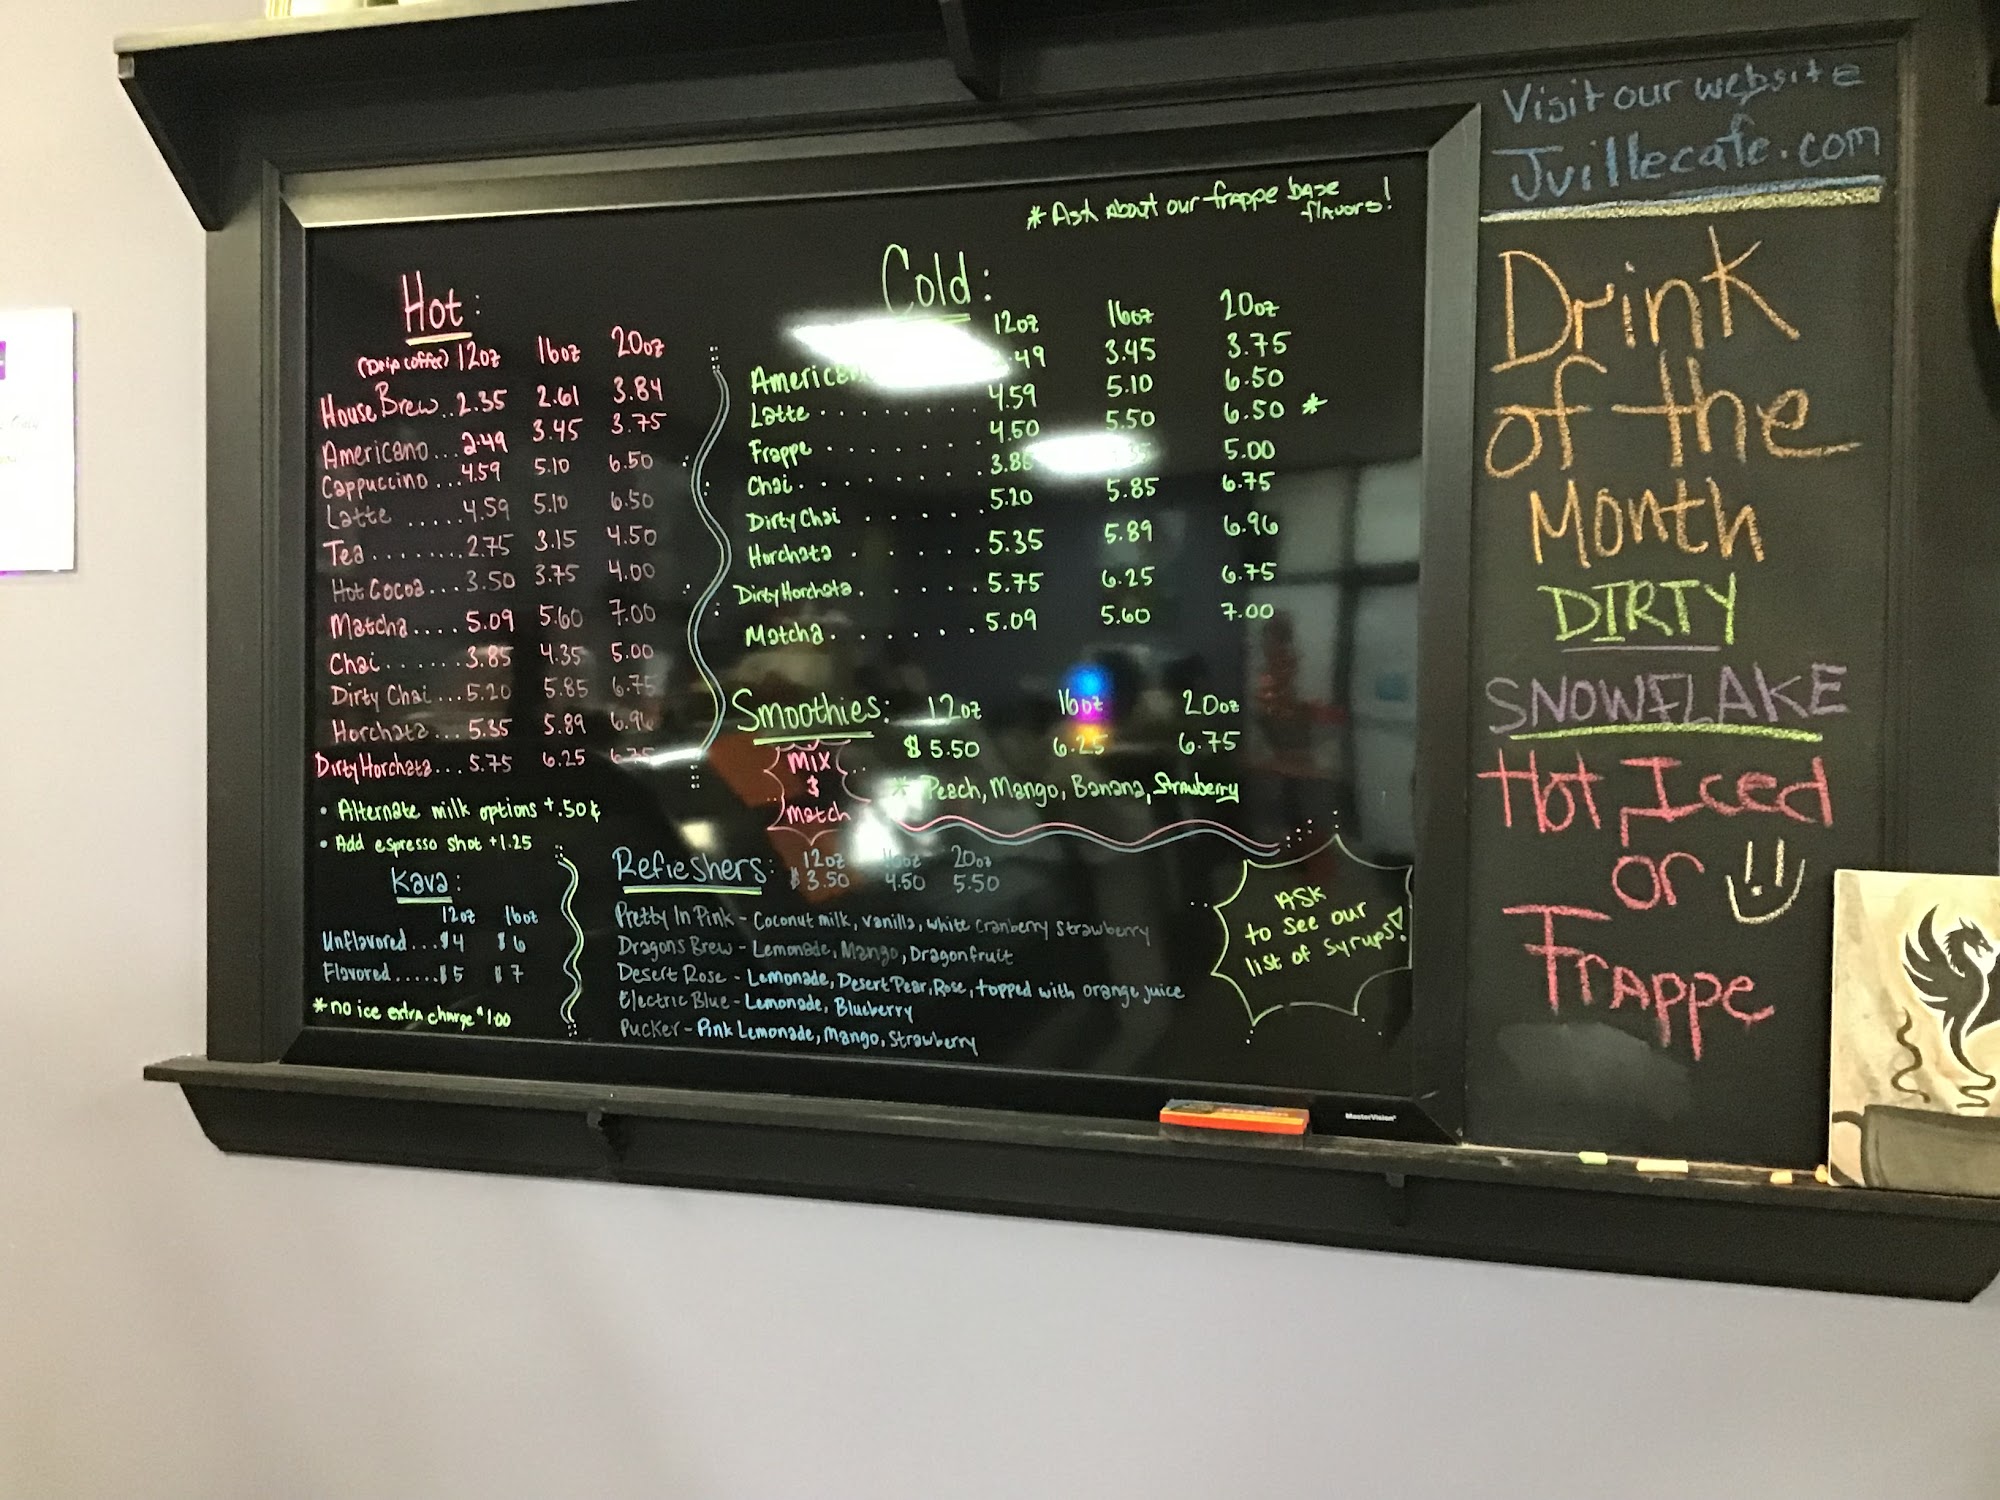 * Ask About our frappe base
flavors!
Hot:
(Drip coffee) 12oz 16oz 20oz
House Brew..2.35 2.61 3.84
Americano...2.49 3.45 3.75
Cappuccino...4.59 5.10 6.50
Latte .....4.59 5.10 6.50
Tea........2.75 3.15 4.50
Hot Cocoa...3.50 3.75 4.00
Matcha....5.09 5.60 7.00
Chai......3.85 4.35 5.00
Dirty Chai...5.20 5.85 6.75
Horchata...5.35 5.89 6.96
Dirty Horchata...5.75 6.25 6.75
• Alternate milk options +.50¢
• Add espresso shot +1.25
Kava:
12oz 16oz
Unflavored...$4 $6
Flavored.....$5 $7
*no ice extra charge $1.00
Cold:
12oz 16oz 20oz
3.45 3.75
Latte........4.59 5.10 6.50
Frappe.......4.50 5.50 6.50 *
Chai........ 5.00
Dirty Chai.....5.20 5.85 6.75
Horchata.......5.35 5.89 6.96
Dirty Horchata.....5.75 6.25 6.75
Matcha.......5.09 5.60 7.00
Smoothies: 12oz 16oz 20oz
$5.50 6.25 6.75
Mix
&
match
* Peach, Mango, Banana, Strawberry
Refreshers: 12oz 16oz 20oz
$3.50 4.50 5.50
Pretty In Pink - Coconut milk, vanilla, white cranberry strawberry
Dragons Brew - Lemonade, Mango, Dragonfruit
Desert Rose - Lemonade, Desert Pear, Rose, topped with orange juice
Electric Blue - Lemonade, Blueberry
Pucker - Pink Lemonade, Mango, Strawberry
ASK
to see our
list of syrups!
MasterVision
Visit our website
Jvillecafe.com
Drink
of the
Month
DIRTY
SNOWFLAKE
Hot Iced
or
Frappe